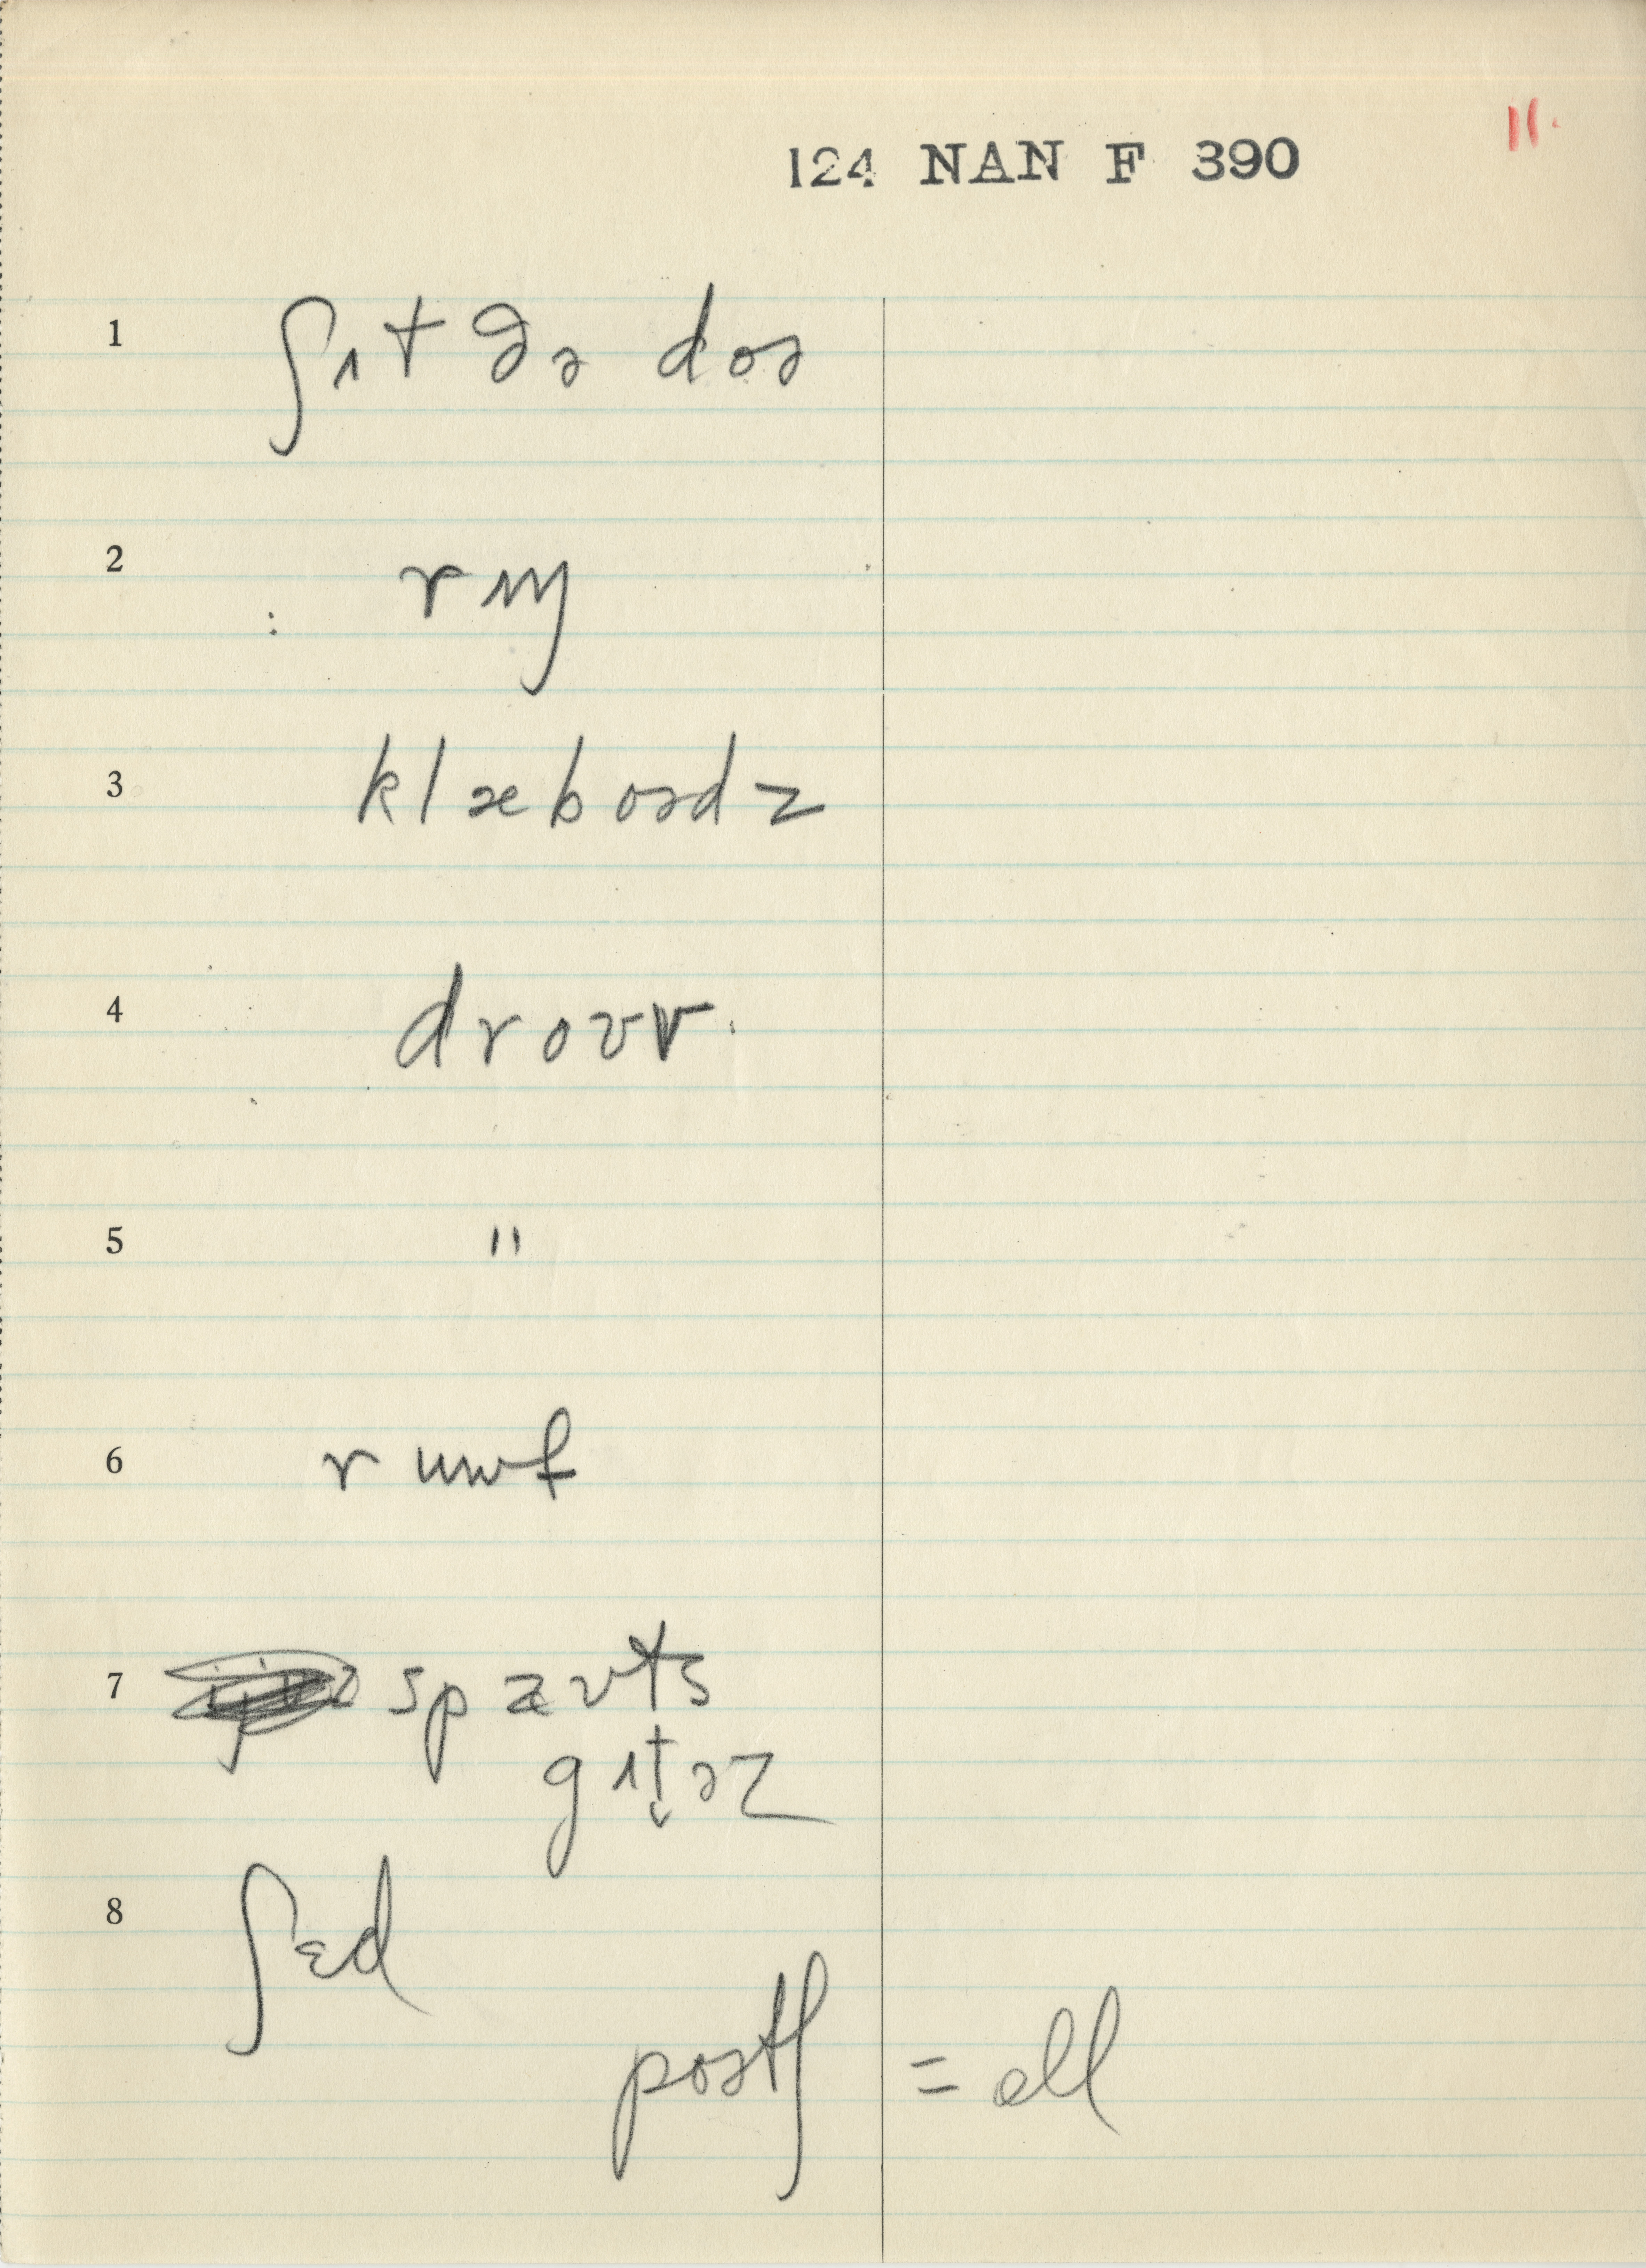 11.
124 NAN F 390
1 ʃɪt ðə doə
2 rɪŋ
3 klæboədz
4 drɔɪv.
5 "
6 rumf
7 spæʊts
gɪt̬əz
8 ʃɛd
poətʃ = ell